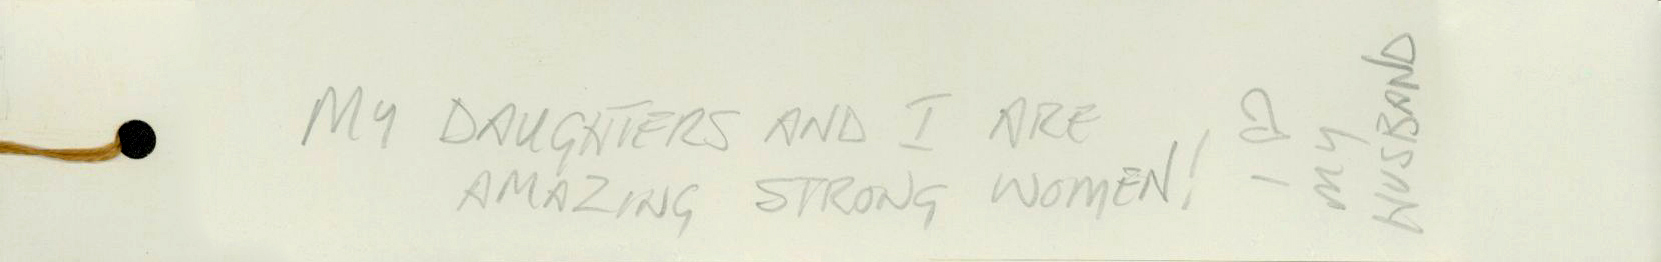 MY DAUGHTERS AND I ARE
AMAZING STRONG WOMEN!
I ♡
MY
HUSBAND